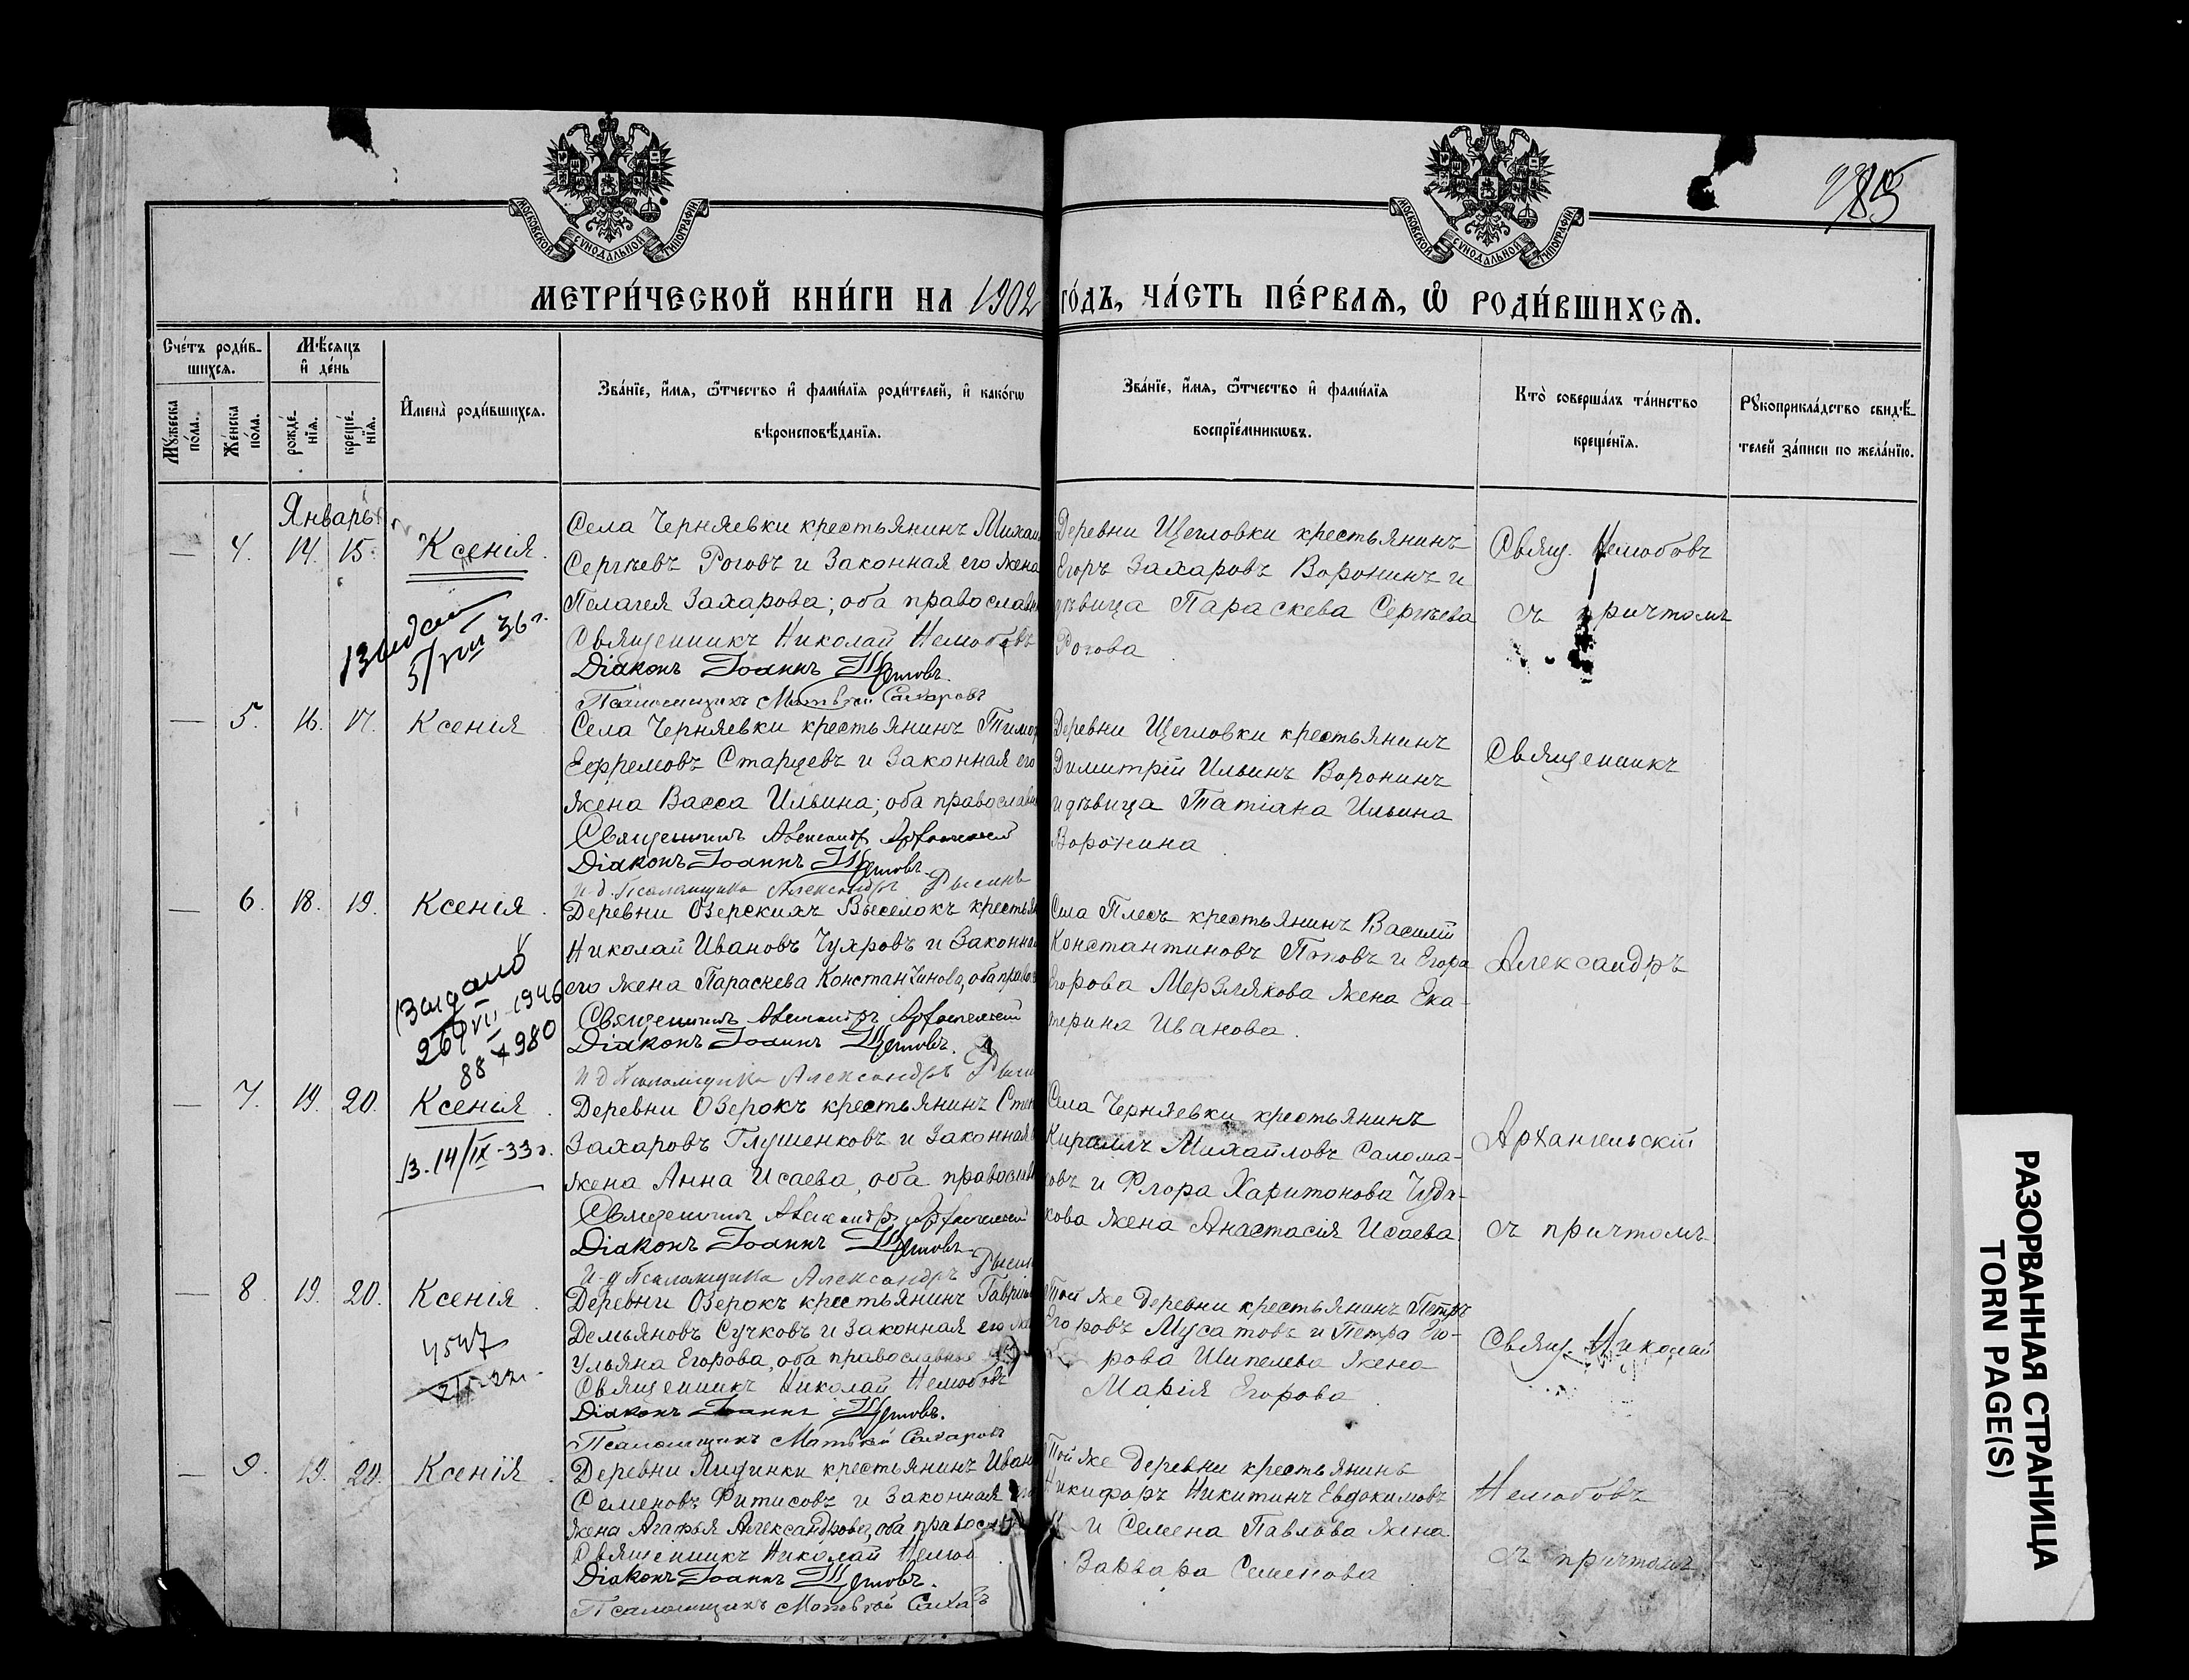 285
МОСКОВСКОЙ СѴНОДАЛЬНОЙ ТИПОГРАФІИ
МОСКОВСКОЙ СѴНОДАЛЬНОЙ ТИПОГРАФІИ
МЕТРИ́ЧЕСКОЙ КНИ́ГИ НА 1902 ГО́ДЪ, ЧА́СТЬ ПЕ́РВАѦ, Ѡ РОДИ́ВШИХСѦ.
Сче́тъ роди́в-
шихсѧ.
Мѣ́сѧцъ
и҆ де́нь
Мꙋ́жеска по́ла.
Же́нска по́ла.
рожде́-нїѧ.
креще́-нїѧ.
И҆мена̀ роди́вшихсѧ.
Зва́нїе, и҆́мѧ, ѻ҆́тчество и҆ фами́лїѧ роди́телей, и҆ како́гѡ
вѣроисповѣ́данїѧ.
Зва́нїе, и҆́мѧ, ѻ҆́тчество и҆ фами́лїѧ
воспрїе́мникѡвъ.
Кто̀ соверша́лъ та́инство
креще́нїѧ.
Рꙋкоприкла́дство свидѣ́-
телей за́писи по жела́нїю.
Январь
— 4. 14. 15. Ксенія.
Села Черняевки крестьянинъ Михаи
Сергѣевъ Роговъ и законная его жена
Пелагея Захарова; оба православн
Священникъ Николай
Діаконъ Іоаннъ
Псаломщикъ Матвѣй Сахаровъ
Деревни Щегловки крестьянинъ
Егоръ Захаровъ Воронинъ и
дѣвица Параскева Сергѣева
Рогова
Свящ.
съ причтомъ
5/VIII 36 г.
— 5. 16. 17. Ксенія
Села Черняевки крестьянинъ Тимоф
Ефремовъ Старцевъ и законная его
жена Васса Ильина; оба православн
Священникъ Александръ Архангельскій
Діаконъ Іоаннъ
и. д. Псаломщика Александръ
Деревни Щегловки крестьянинъ
Димитрій Ильинъ Воронинъ
и дѣвица Татіана Ильина
Воронина
Священникъ
— 6. 18. 19. Ксенія.
Деревни Озерскихъ Выселокъ крестьян
Николай Ивановъ Чухровъ и законная
его жена Параскева Константинова, оба правосл
Священникъ Александръ Архангельскій
Діаконъ Іоаннъ
и. д. Псаломщика Александръ
Села Плесъ крестьянинъ Василій
Константиновъ Поповъ и Егора
Егорова Мерзлякова жена Ека-
терина Иванова.
Александръ
— 7. 19. 20. Ксенія.
В. 14/IX-33 г.
Деревни Озерокъ крестьянинъ Степ
Захаровъ Глушенковъ и законная
жена Анна Исаева, оба православн
Священникъ Александръ Архангельскій
Діаконъ Іоаннъ
и. д. Псаломщика Александръ
Села Черняевки крестьянинъ
Кириллъ Михайловъ Салома-
овъ и Флора Харитонова Чуда-
кова жена Анастасія Исаева
Архангельскій
съ причтомъ
— 8. 19. 20. Ксенія.
Деревни Озерокъ крестьянинъ Гаврии
Демьяновъ Сучковъ и законная его же
Ульяна Егорова, оба православные
Священникъ Николай
Діаконъ Іоаннъ
Псаломщикъ Матвѣй Сахаровъ
Той же деревни крестьянинъ Петръ
Егоровъ Мусатовъ и Петра Его-
рова Шипелева жена
Марія Егорова
Свящ. Николай
— 9. 19. 20. Ксенія.
Деревни крестьянинъ Иванъ
Семеновъ Фитисовъ и законная его
жена Агафья Александрова, оба правосл
Священникъ Николай
Діаконъ Іоаннъ
Псаломщикъ Матвѣй
Той же деревни крестьянинъ
Никифоръ Никитинъ Евдокимовъ
и Семена Павлова жена
Варвара Семенова
съ причтомъ
РАЗОРВАННАЯ СТРАНИЦА
TORN PAGE(S)